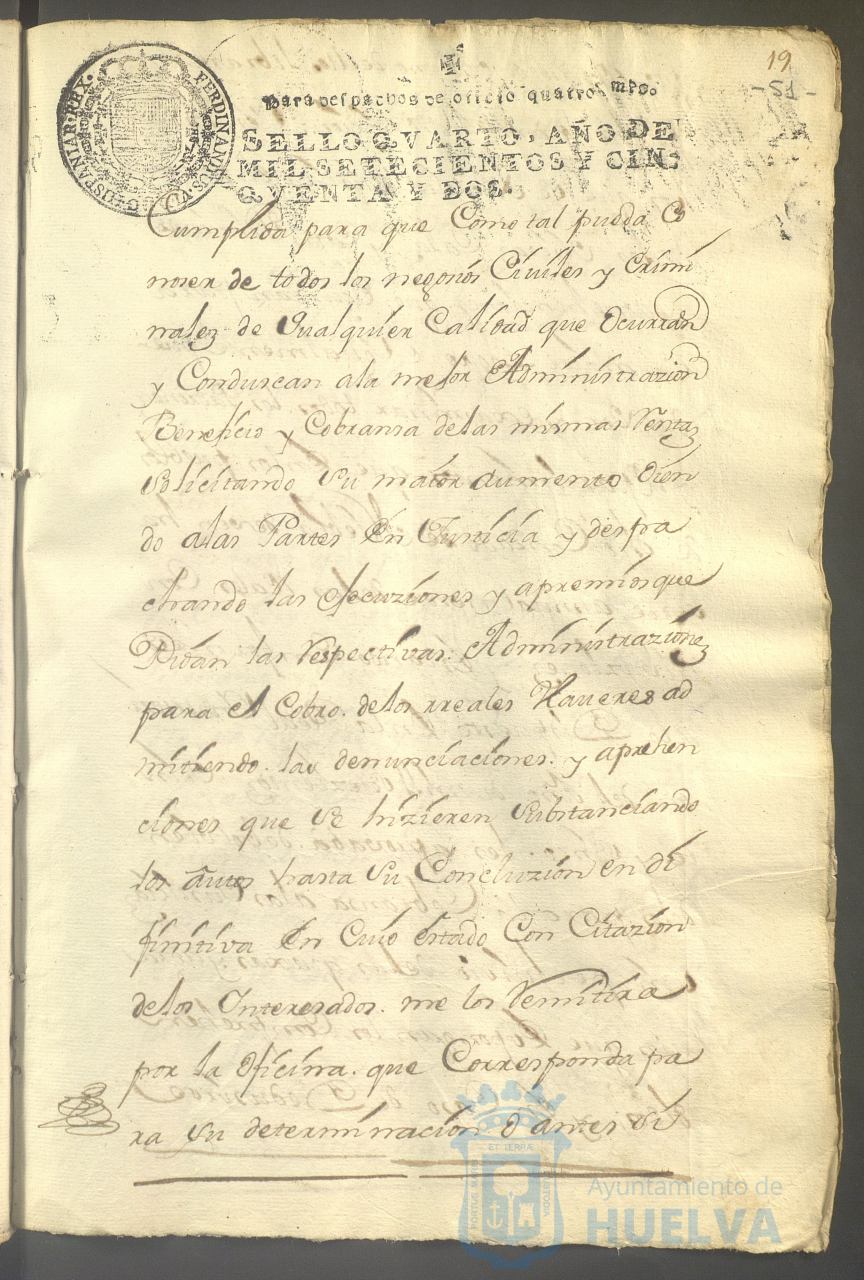 19
-51-
FERDINANDUS. VI. D. G. HISPANIAR. REX.
Para despachos de oficio quatro mrs.
SELLO QVARTO, AÑO DE
MIL SETECIENTOS Y CIN-
QVENTA Y DOS.
Cumplida para que Como tal pueda Co
noser de todos los negosios Civiles y Crimi
nales de qualquier Calidad que Ocurran
y Conduscan ala mejor Administrazion
Beneficio y Cobransa delas mismas Rentas
solicitando su maior aumento oien
do alas Partes En Justicia y despa
chando las Execuziones y apremios que
Pidan las Respectivas Administraziones
para el Cobro. delos rreales Haveres ad
mitiendo. las denunciaciones. y aprehen
ciones que se hizieren substanciando
los autos hasta su Concluzion en di
finitiva En Cuio estado Con Citazion
delos Interesados. me los Remitira
por la Oficina. que Corresponda pa
ra su determinacion o antes si
ET TERRAE
PORTUS MARIS
CUSTODIA
Ayuntamiento de
HUELVA